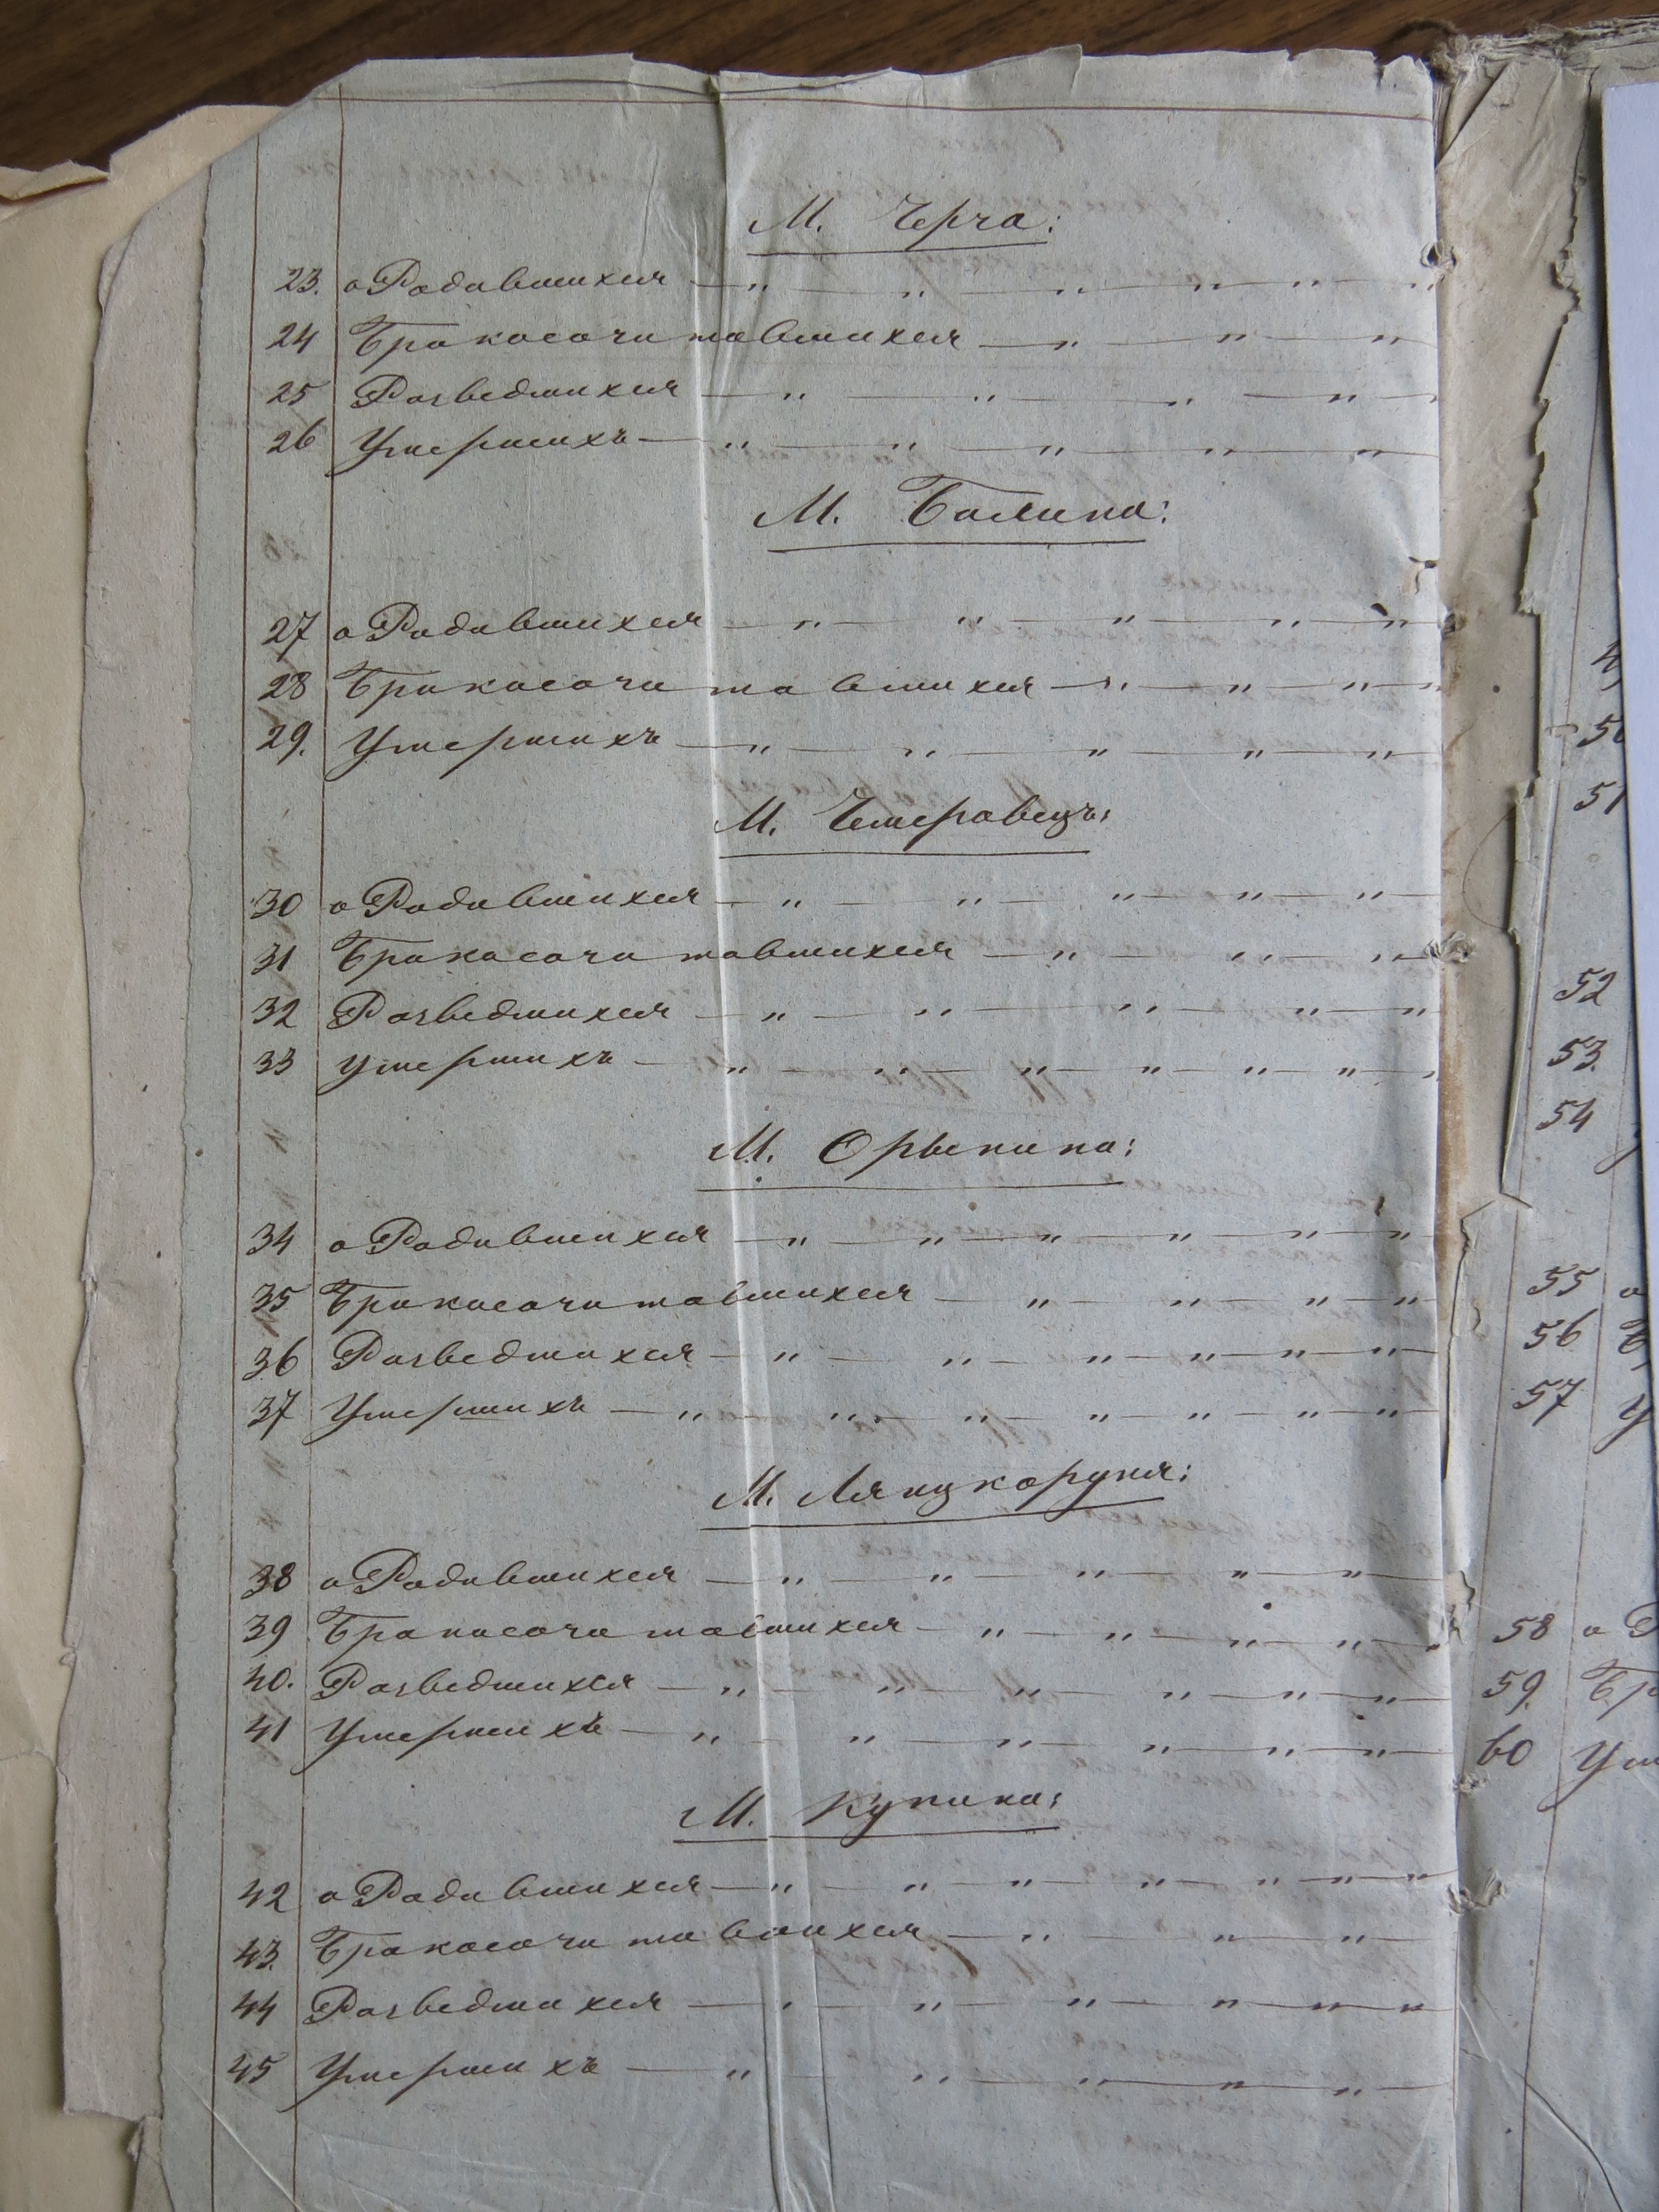 М. Черча:
23. о Родившихся — „ — „ — „ — „ — „ — „
24 Бракосочитавшихся — „ — „ — „
25 Розведшихся — „ — „ — „ — „ —
26 Умершихъ — „ — „ — „ — „ — „
М. Балинa:
27 о Родившихся — „ — „ — „ — „ — „
28 Бракосочитавшихся — „ — „ — „ — „
29. Умершихъ — „ — „ — „ — „ — „
М. Чемеровецъ:
30 о Родившихся — „ — „ — „ — „ — „
31 Бракосочитавшихся — „ — „ — „
32 Розведшихся — „ — „ — „ — „ — „
33 Умершихъ — „ — „ — „ — „ — „ — „ — „
М. Орынина:
34 о Родившихся — „ — „ — „ — „ — „ — „
35 Бракосочитавшихся — „ — „ — „ — „
36 Розведшихся — „ — „ — „ — „ — „ — „
37 Умершихъ — „ — „ — „ — „ — „ — „ — „
М. Лянцкоруня:
38 о Родившихся — „ — „ — „ — „ — „
39 Бракосочитавшихся — „ — „ — „ — „ — „
40. Розведшихся — „ — „ — „ — „ — „ — „
41 Умершихъ — „ — „ — „ — „ — „ — „
М. Купина:
42 о Родившихся — „ — „ — „ — „ — „ — „ — „
43. Бракосочитавшихся — „ — „ — „
44 Розведшихся — „ — „ — „ — „ — „ — „
45 Умершихъ — „ — „ — „ — „ — „
51
52
53.
54
55 о
56 Б
57 У
58 о Р
59. Бр
60 Ум